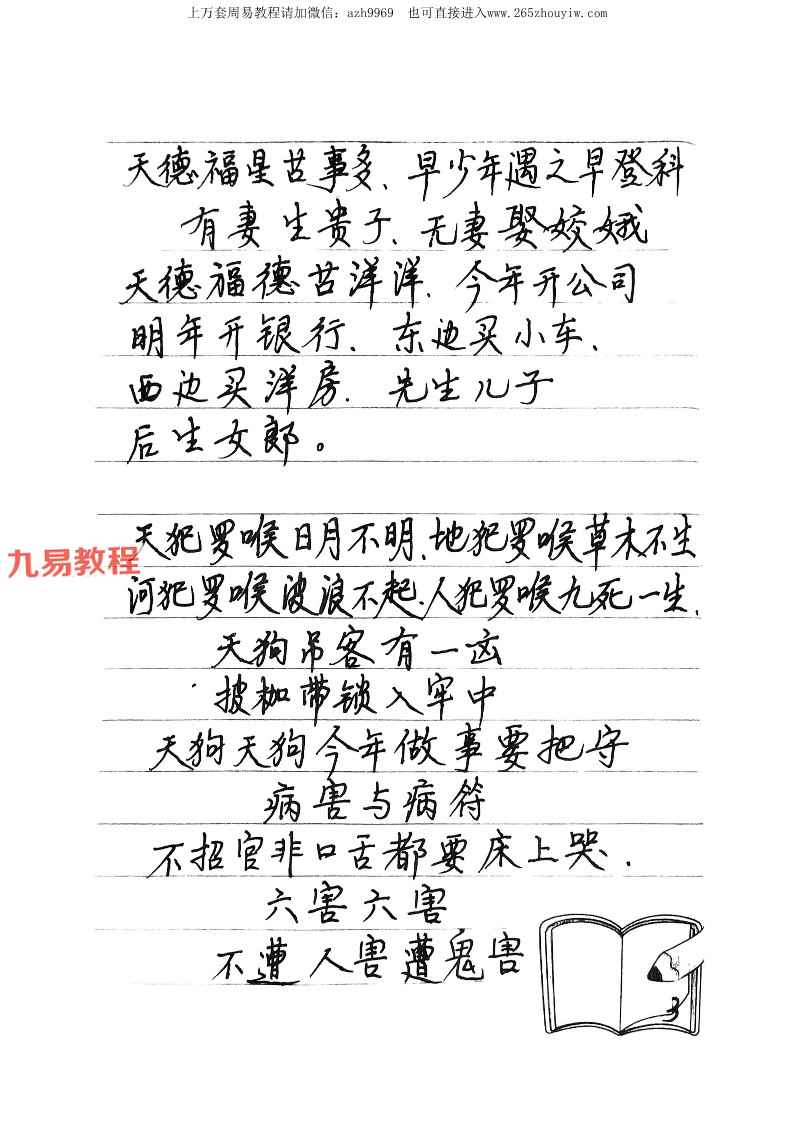 上万套周易教程请加微信：azh9969 也可直接进入www.265zhouyiw.com
天德福星苦事多、早少年遇之早登科
有妻生贵子、无妻娶姣娥
天德福德苦洋洋、今年开公司
明年开银行、东边买小车、
西边买洋房、先生儿子
后生女郎。
天犯罗喉日月不明、地犯罗喉草木不生
九易教程
河犯罗喉波浪不起、人犯罗喉九死一生、
天狗吊客有一凶
披枷带锁入牢中
天狗天狗今年做事要把守
病害与病符
不招官非口舌都要床上哭、
六害六害
不遭人害遭鬼害
3